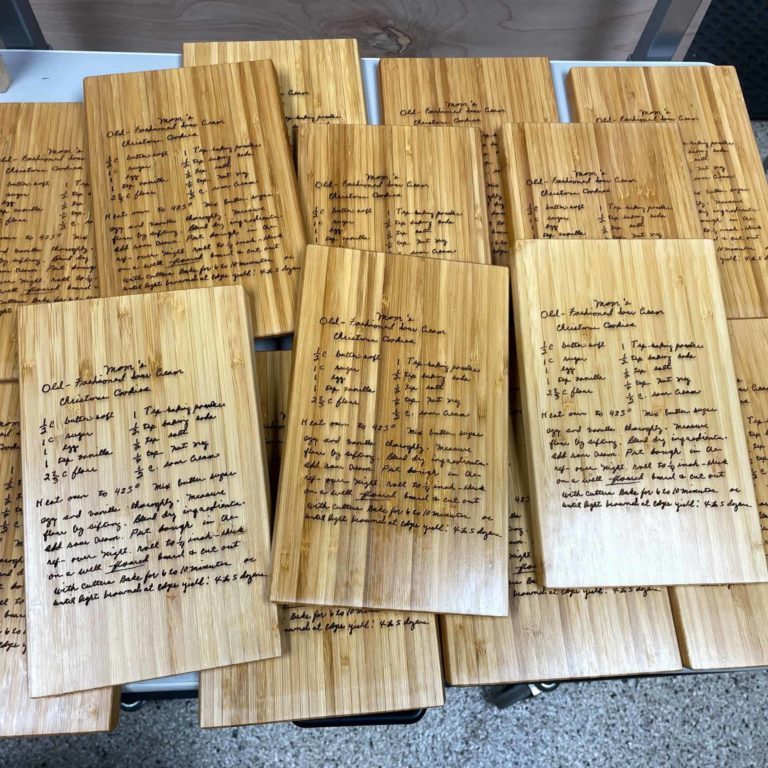 Mom's
Old-Fashioned Sour Cream
Christmas Cookies
½ C butter soft
1 C sugar
1 egg
1 tsp vanilla
2⅔ C flour
1 Tsp. baking powder
½ tsp baking soda
½ tsp salt
½ tsp nut meg
½ C. sour cream
Heat oven to 425° Mix butter sugar
egg and vanilla thoroughly. Measure
flour by sifting. Blend dry ingredients.
add sour cream. Put dough in the
ref- over night. roll to ¼ inch-thick
on a well floured board & cut out
with cutters Bake for 6 to 10 minutes or
until light browned at edges yield: 4 to 5 dozen